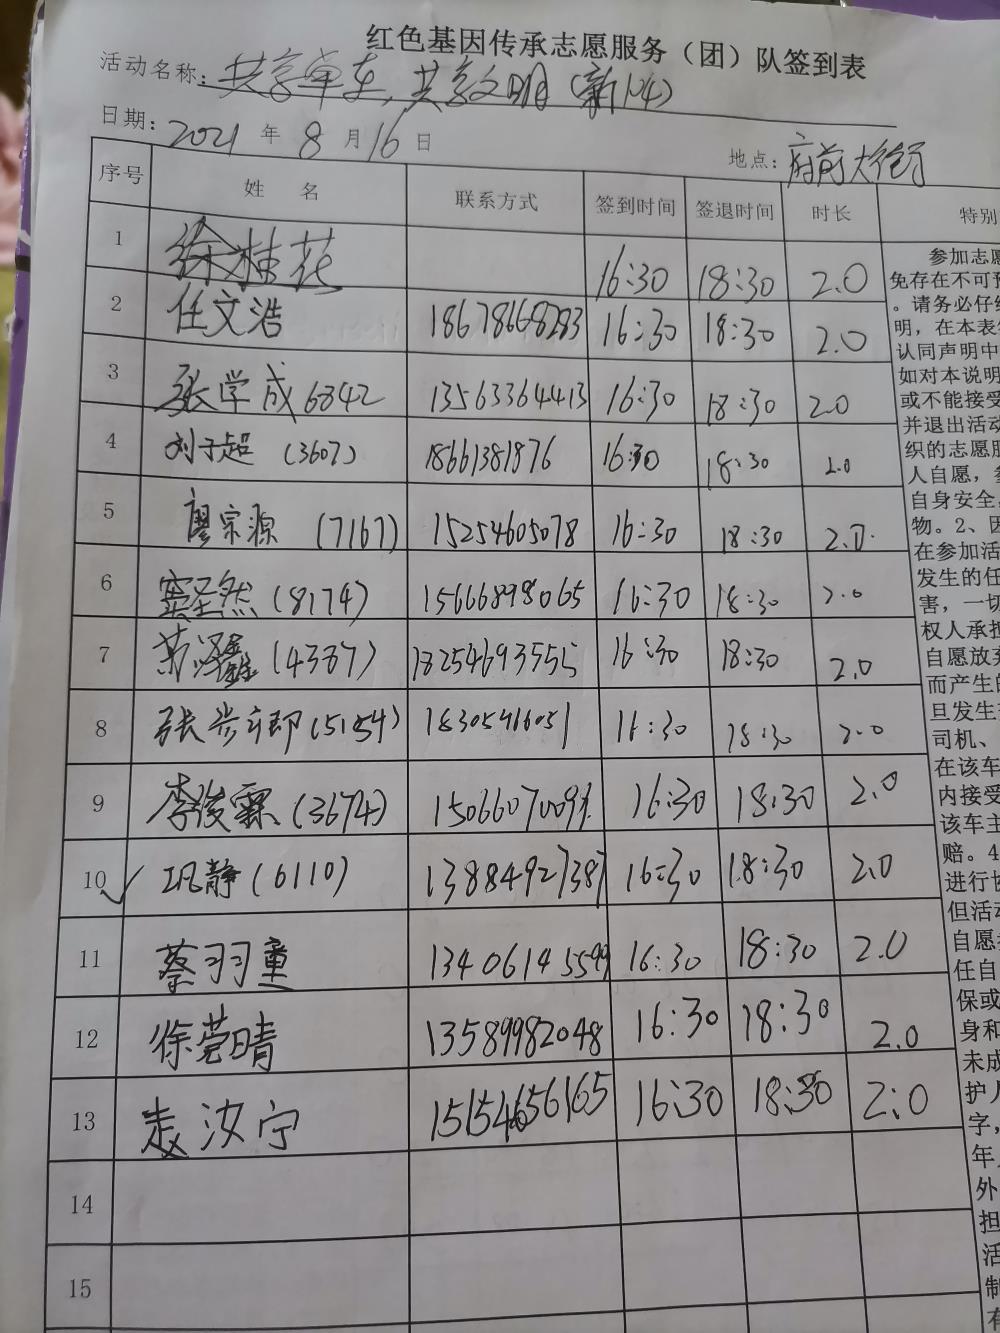 红色基因传承志愿服务（团）队签到表
活动名称：共享单车，共享文明（新104）
日期：2021 年 8 月 16 日 地点：府前大街
序号 姓 名 联系方式 签到时间 签退时间 时长 特别
1 徐桂花 16:30 18:30 2.0
2 任文浩 18678668283 16:30 18:30 2.0
3 张学成 6842 13563364413 16:30 18:30 2.0
4 刘子超 (3607) 18661381876 16:30 18:30 2.0
5 廖宗源 (7167) 15254605078 16:30 18:30 2.0
6 窦圣然 (8174) 15666898065 16:30 18:30 2.0
7 (4387) 18254693555 16:30 18:30 2.0
8 张 (5154) 18305466051 16:30 18:30 2.0
9 李俊霖 (3674) 1506607009 16:30 18:30 2.0
10 巩静 (6110) 13884927387 16:30 18:30 2.0
11 蔡羽童 13406145599 16:30 18:30 2.0
12 徐莞晴 13589982048 16:30 18:30 2.0
13 袁汝宁 15154656165 16:30 18:30 2:0
14
15
参加志愿
免存在不可预
。请务必仔细
明，在本表
认同声明中
如对本说明
或不能接受
并退出活动
织的志愿服
人自愿，参
自身安全
物。2、因
在参加活
发生的任
害，一切
权人承担
自愿放弃
而产生的
旦发生
司机、
在该车
内接受
该车主
赔。4
进行协
但活动
自愿
任自
保或
身和
未成
护人
字，
年
外
担
活
制
有